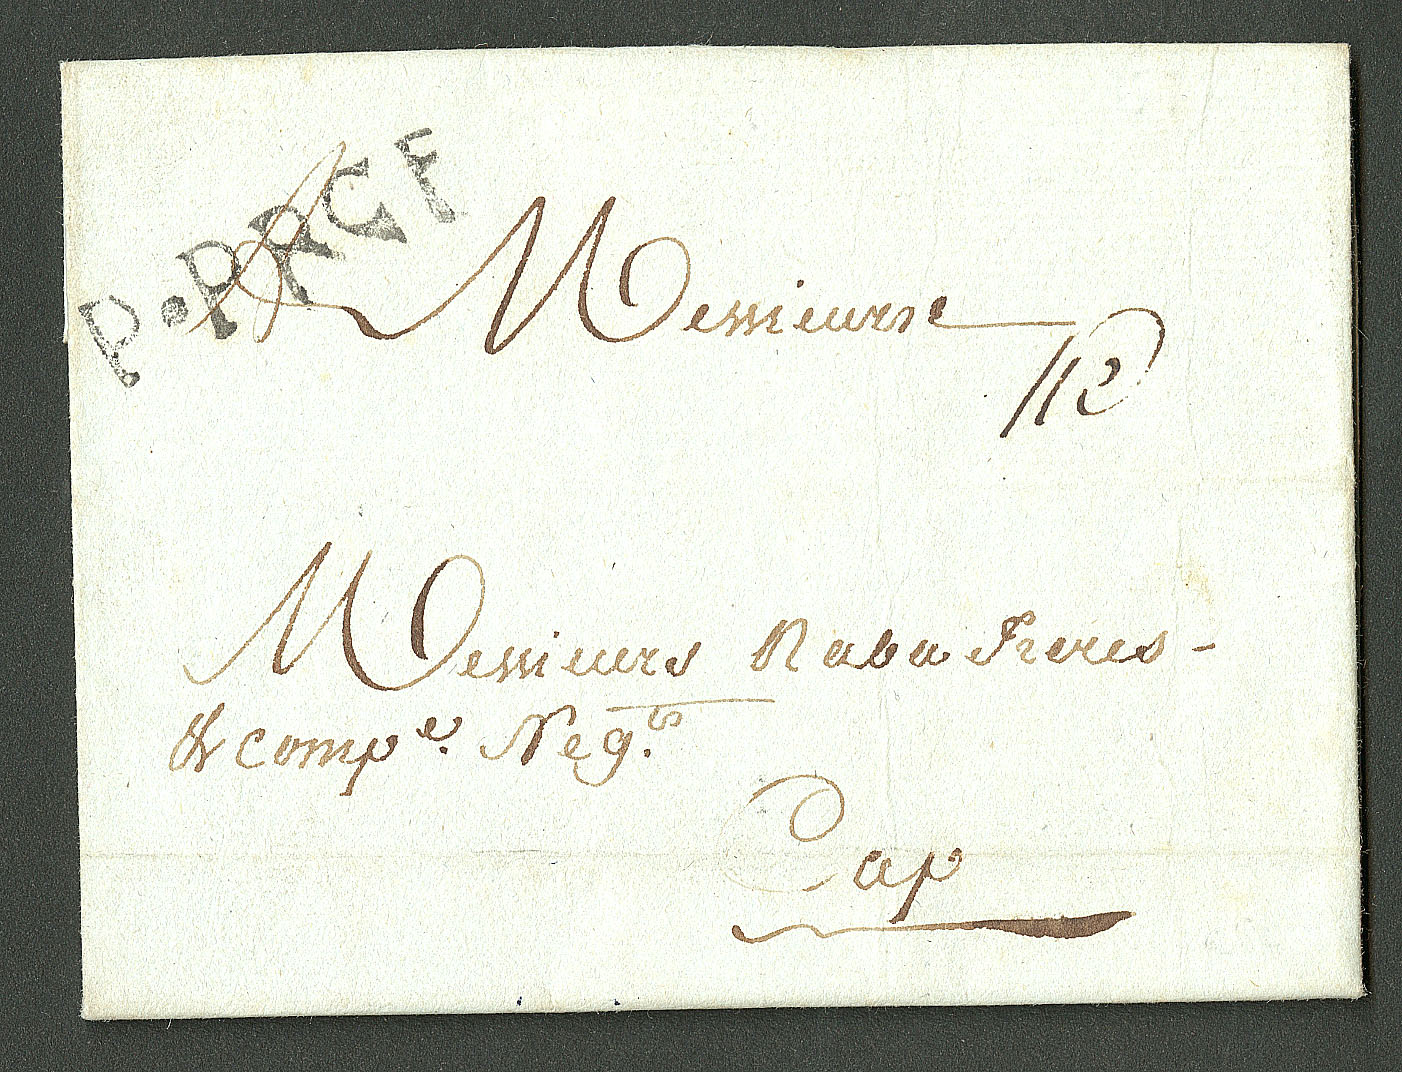 P•PRCE
A Messieurs
112
Messieurs Raba Freres -
& compe. Negts.
Cap